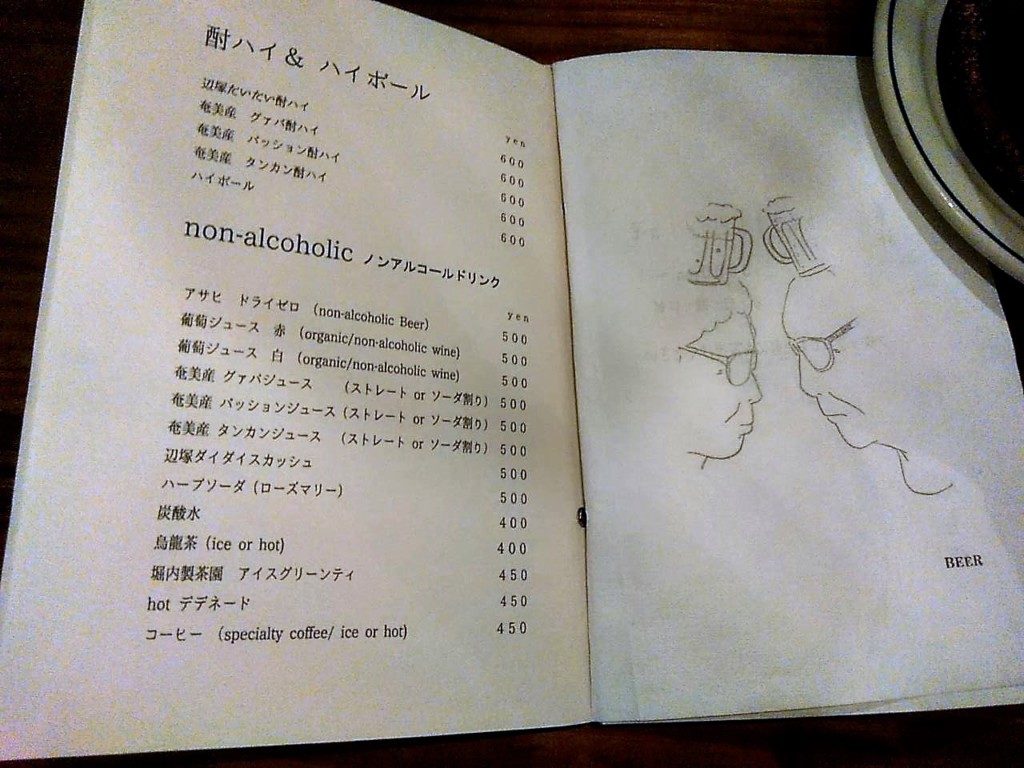 酎ハイ & ハイボール
yen
辺塚だいだい酎ハイ 600
奄美産 グァバ酎ハイ 600
奄美産 パッション酎ハイ 600
奄美産 タンカン酎ハイ 600
ハイボール 600
non-alcoholic ノンアルコールドリンク
yen
アサヒ ドライゼロ (non-alcoholic Beer) 500
葡萄ジュース 赤 (organic/non-alcoholic wine) 500
葡萄ジュース 白 (organic/non-alcoholic wine) 500
奄美産 グァバジュース (ストレート or ソーダ割り) 500
奄美産 パッションジュース (ストレート or ソーダ割り) 500
奄美産 タンカンジュース (ストレート or ソーダ割り) 500
辺塚ダイダイスカッシュ 500
ハーブソーダ (ローズマリー) 500
炭酸水 400
烏龍茶 (ice or hot) 400
堀内製茶園 アイスグリーンティ 450
hot デデネード 450
コーヒー (specialty coffee/ ice or hot) 450
BEER